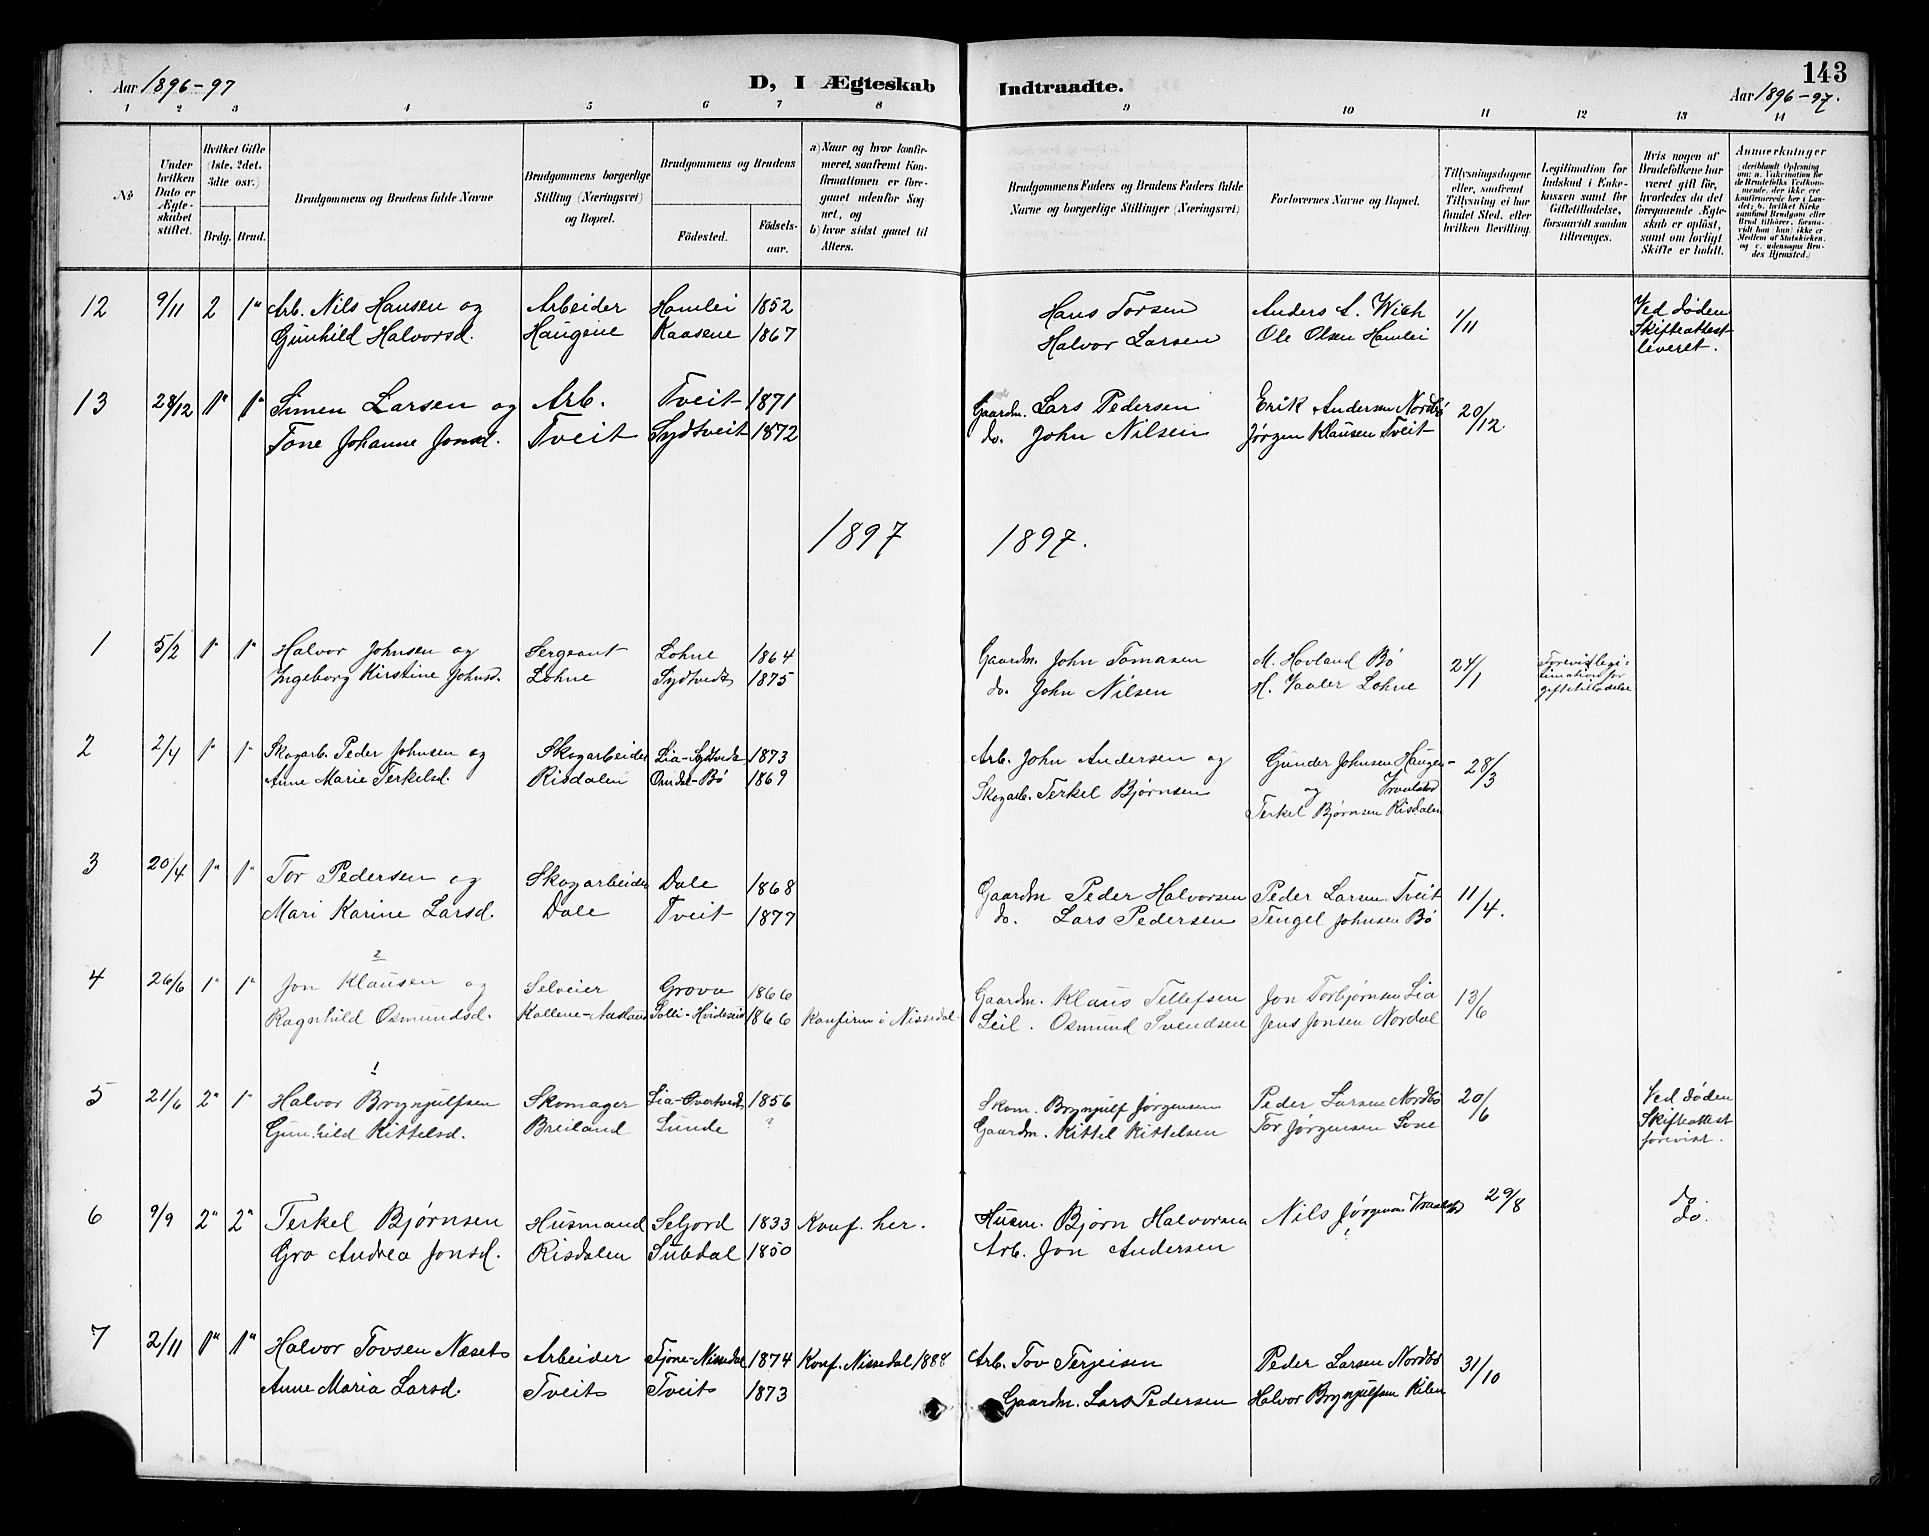 Aar 1896-97
D, I Ægteskab Indtraadte.
143
Aar 1896-97.
1 2 3 4 5 6 7 8 9 10 11 12 13 14
№
Under hvilken Dato er Ægteskabet stiftet.
Hvilket Gifte (1ste, 2det, 3die osv.)
Brdg. Brud.
Brudgommens og Brudens fulde Navne
Brudgommens borgerlige Stilling (Næringsvei) og Bopæl.
Brudgommens og Brudens
Födested.
Födselsaar.
a) Naar og hvor konfirmeret, saafremt Konfirmationen er foregaaet udenfor Sognet, og
b) hvor sidst gaaet til Alters.
Brudgommens Faders og Brudens Faders fulde Navne og borgerlige Stillinger (Næringsvei)
Forlovernes Navne og Bopæl.
Tillysningsdagene eller, saafremt Tillysning ei har fundet Sted, efter hvilken Bevilling.
Legitimation for Indskud i Enkekassen samt for Giftetilladelse, forsaavidt saadan tiltrænges.
Hvis nogen af Brudefolkene har været gift för, hvorledes da det foregaaende Ægteskab er oplöst, samt om lovligt Skifte er holdt.
Anmærkninger
12 9/11 2 1" Arb. Nils Hansen og Arbeider Hamlei 1852 Hans Torsen Anders A. Wich 1/11 Ved Døden
Gunhild Halvorsd. Haugene Kaasene 1867 Halvor Larsen Ole Olsen Hamlei Skifteattest
leveret.
13 28/12 1" 1" Simen Larsen og Arb. Tveit 1871 Gaardm. Lars Pedersen Erik Andersen Nordbø 20/12.
Tone Johanne Jonsd. Tveit Sydtveit 1872 do. John Nilsen Jørgen Klausen Tveit
1897 1897.
1 5/2 1" 1" Halvor Johnsen og Sergeant Lohne 1864 Gaardm. John Tomasen M. Hovland Bø 24/1 Forevist legi-
Ingeborg Kirstine Johnsd. Lohne Sydtvedt 1875 do. John Nilsen H. Vaaler Lohne timation for
giftetilladelse
2 2/4 1" 1" Skogarb. Peder Johnsen og Skogarbeider Lia-Sydtvedt 1873 Arb. John Andersen og Gunder Johnsen Haugen- 28/3
Anne Marie Terkelsd. Risdalen Omdal-Bø 1869 Skogarb. Terkel Bjørnsen og
Terkel Bjørnsen Risdalen
3 20/4 1" 1" Tor Pedersen og Skogarbeider Dale 1868 Gaardm Peder Halvorsen Peder Larsen Tveit 11/4.
Mari Karine Larsd. Dale Tveit 1877 do. Lars Pedersen Tengel Johnsen Bø
2
4 26/6 1" 1" Jon Klausen og Selveier Grova 1866 Gaardm. Klaus Tellefsen Jon Torbjørnsen Lia 13/6
Ragnhild Osmundsd. Kallene-Aasland Solli-Hvideseid 1866 Konfirm i Nissedal Leil. Osmund Svendsen Jens Jonsen Nordal
1
5 21/6 2" 1" Halvor Brynjulfsen Skomager Lia-Overtvedt 1856 Skom. Brynjulf Jørgensen Peder Larsen Nordbø 20/6 Ved Døden
Gunhild Kittelsd. Breiland Lunde ? Gaardm. Kittel Kittelsen Tor Jørgensen Lone Skifteattest
forevist.
6 9/9 2" 2" Terkel Bjørnsen Husmand Seljord 1833 Konf. her. Husm. Bjørn Halvorsen Nils Jørgensen 29/8 do
Gro Andrea Jonsd. Risdalen 1850 Arb. Jon Andersen do.
7 2/11 1" 1" Halvor Tovsen Næset Arbeider Tjöne-Nissedal 1874 Konf. Nissedal 1888 Arb. Tov Terjeisen Peder Larsen Nordbø 31/10
Anne Maria Larsd. Tveit Tveit 1873 Gaardm. Lars Pedersen Halvor Brynjulfsen Kilen